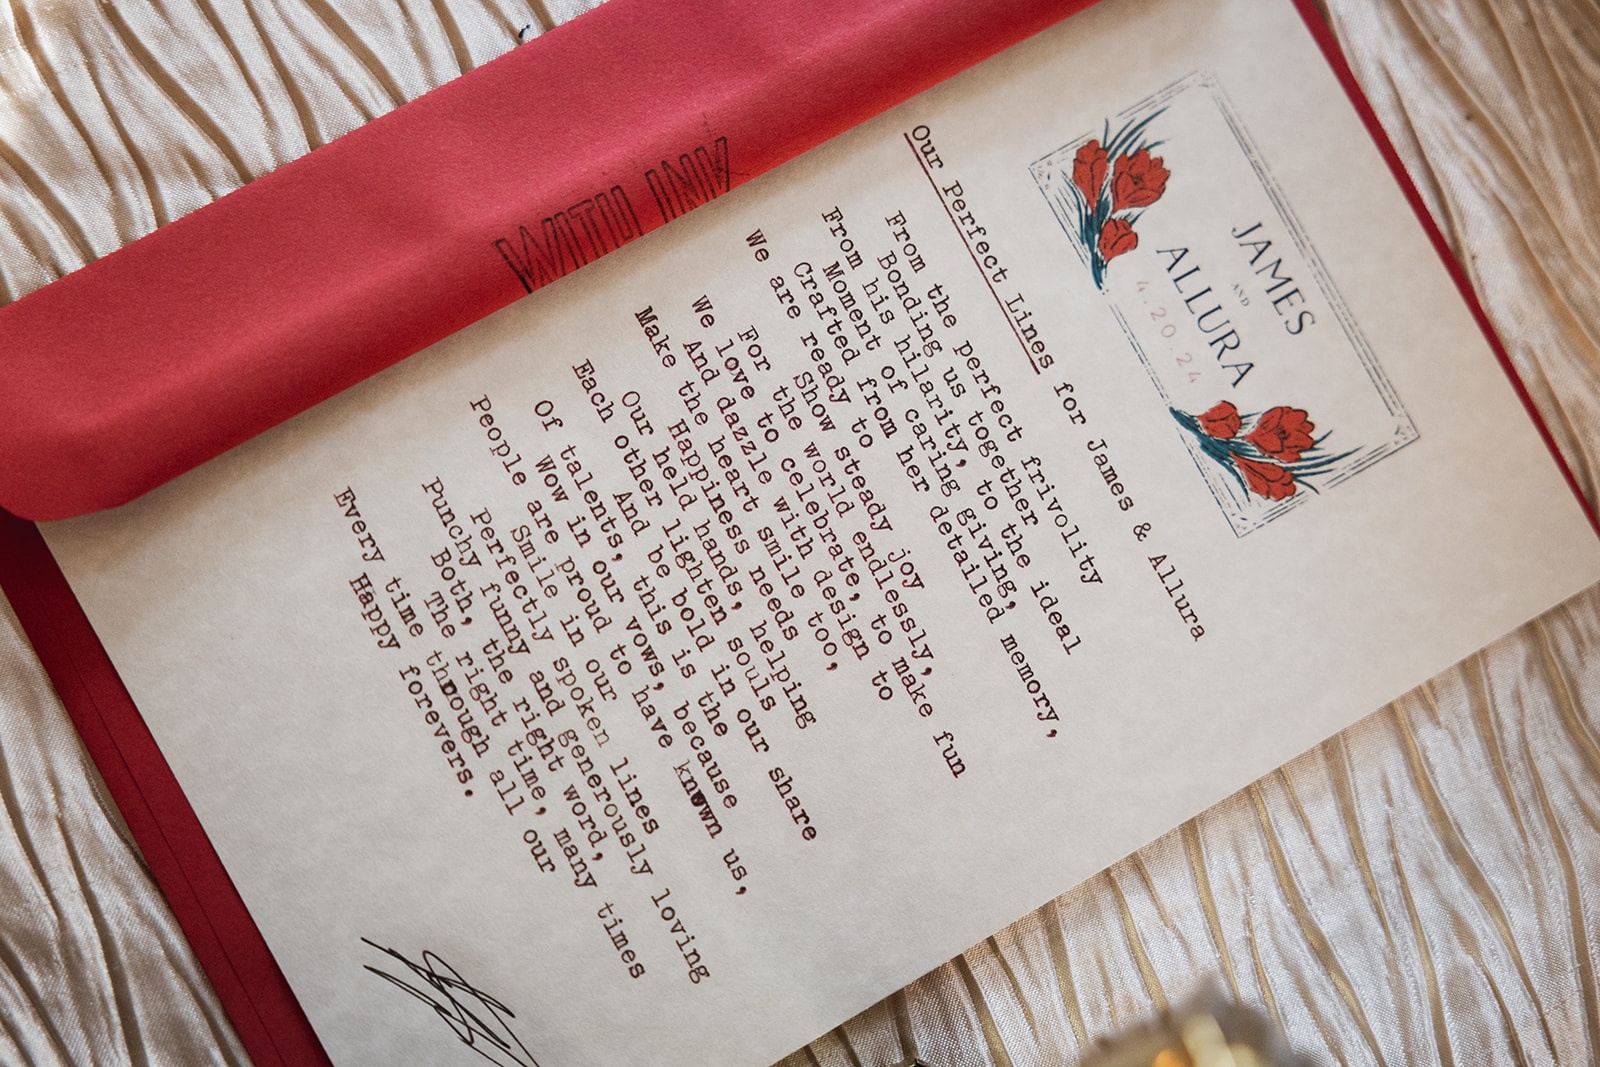 JAMES
AND
ALLURA
4.20.24
Our Perfect Lines for James & Allura
From the perfect frivolity
Bonding us together
From his hilarity, to the ideal
Moment of caring giving,
Crafted from her detailed memory,
We are ready to
Show steady joy
For the world endlessly,
We love to celebrate, to make fun
And dazzle with design to
Make the heart smile too,
Happiness needs
Our held hands, helping
Each other lighten souls
And be bold in our share
Of talents, this is the
Wow in our vows, because
People are proud to have known us,
Smile in our
Perfectly spoken lines
Punchy funny and generously loving
Both, the right word,
The right time, many times
Every time through all our
Happy forevers.
WITH INK